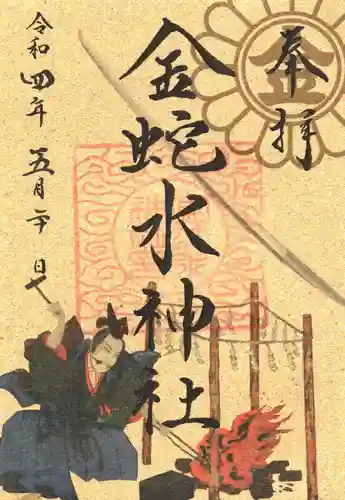 奉拝
金蛇水神社
令和四年 五月二十日